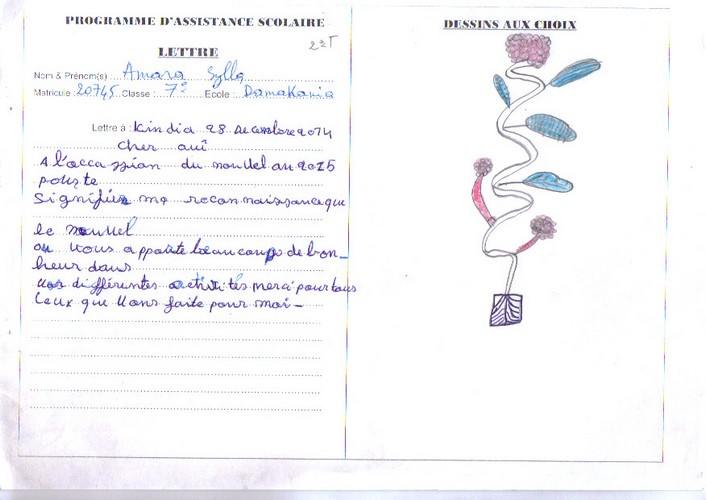 PROGRAMME D'ASSISTANCE SCOLAIRE
LETTRE
Nom & Prénom(s) : Amara Sylla
Matricule : 20745 Classe : 7è Ecole : Damakania
Lettre à : Kindia 28 Decembre 2014
cher ami
A l'occassian du nouvel an 2015
pour te
signifier ma reconnaissance que
le nouvel
an vous apporte beaucoups de bon_
heur dans
vos différentes activités merci pour tous
ceux que vous faite pour moi_
DESSINS AUX CHOIX